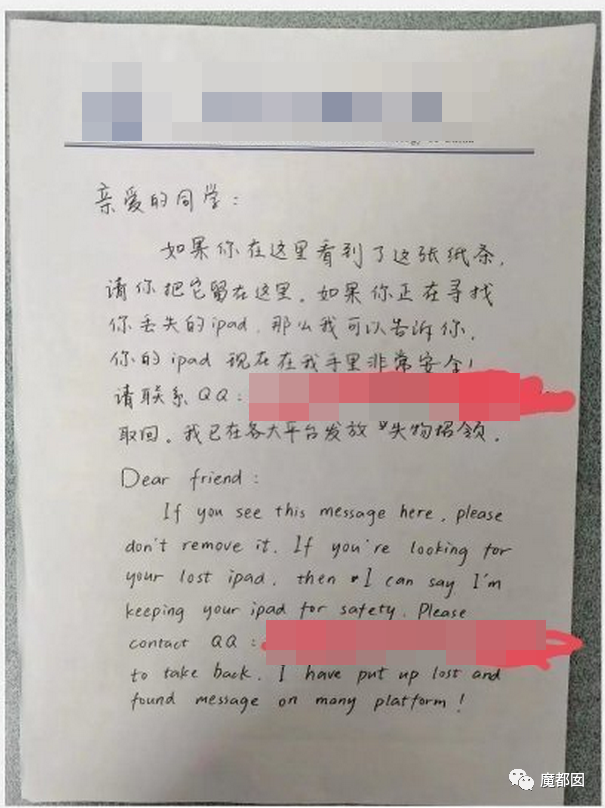 亲爱的同学：
如果你在这里看到了这张纸条，
请你把它留在这里。如果你正在寻找
你丢失的ipad，那么我可以告诉你，
你的ipad现在在我手里非常安全！
请联系QQ：
取回。我已在各大平台发放失物招领。
Dear friend：
If you see this message here, please
don't remove it. If you're looking for
your lost ipad, then I can say I'm
keeping your ipad for safety. Please
contact QQ：
to take back. I have put up lost and
found message on many platform！
魔都囡